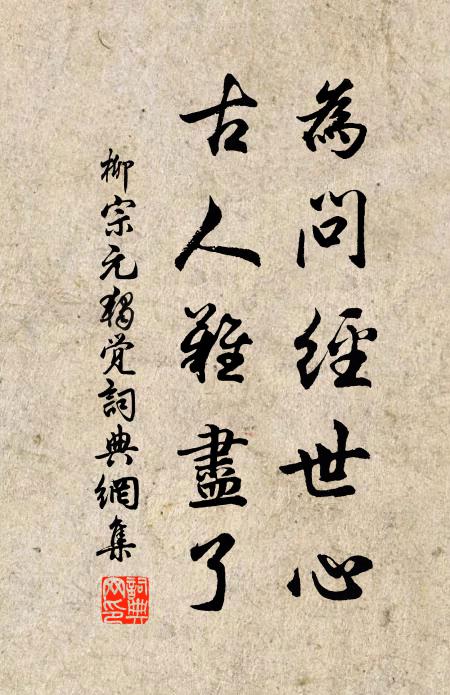 為問經世心
古人難盡了
柳宗元獨覚詞典網集
詞典网印